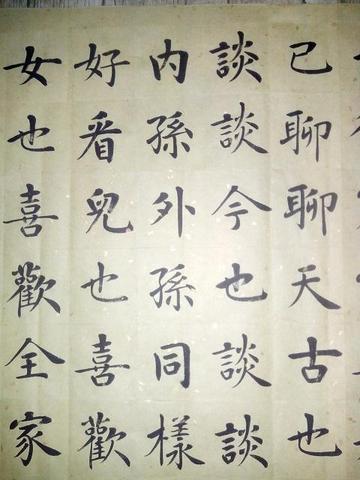 已聊聊天古也
談談今也談談
内孫外孫同樣
好看兒也喜歡
女也喜歡全家